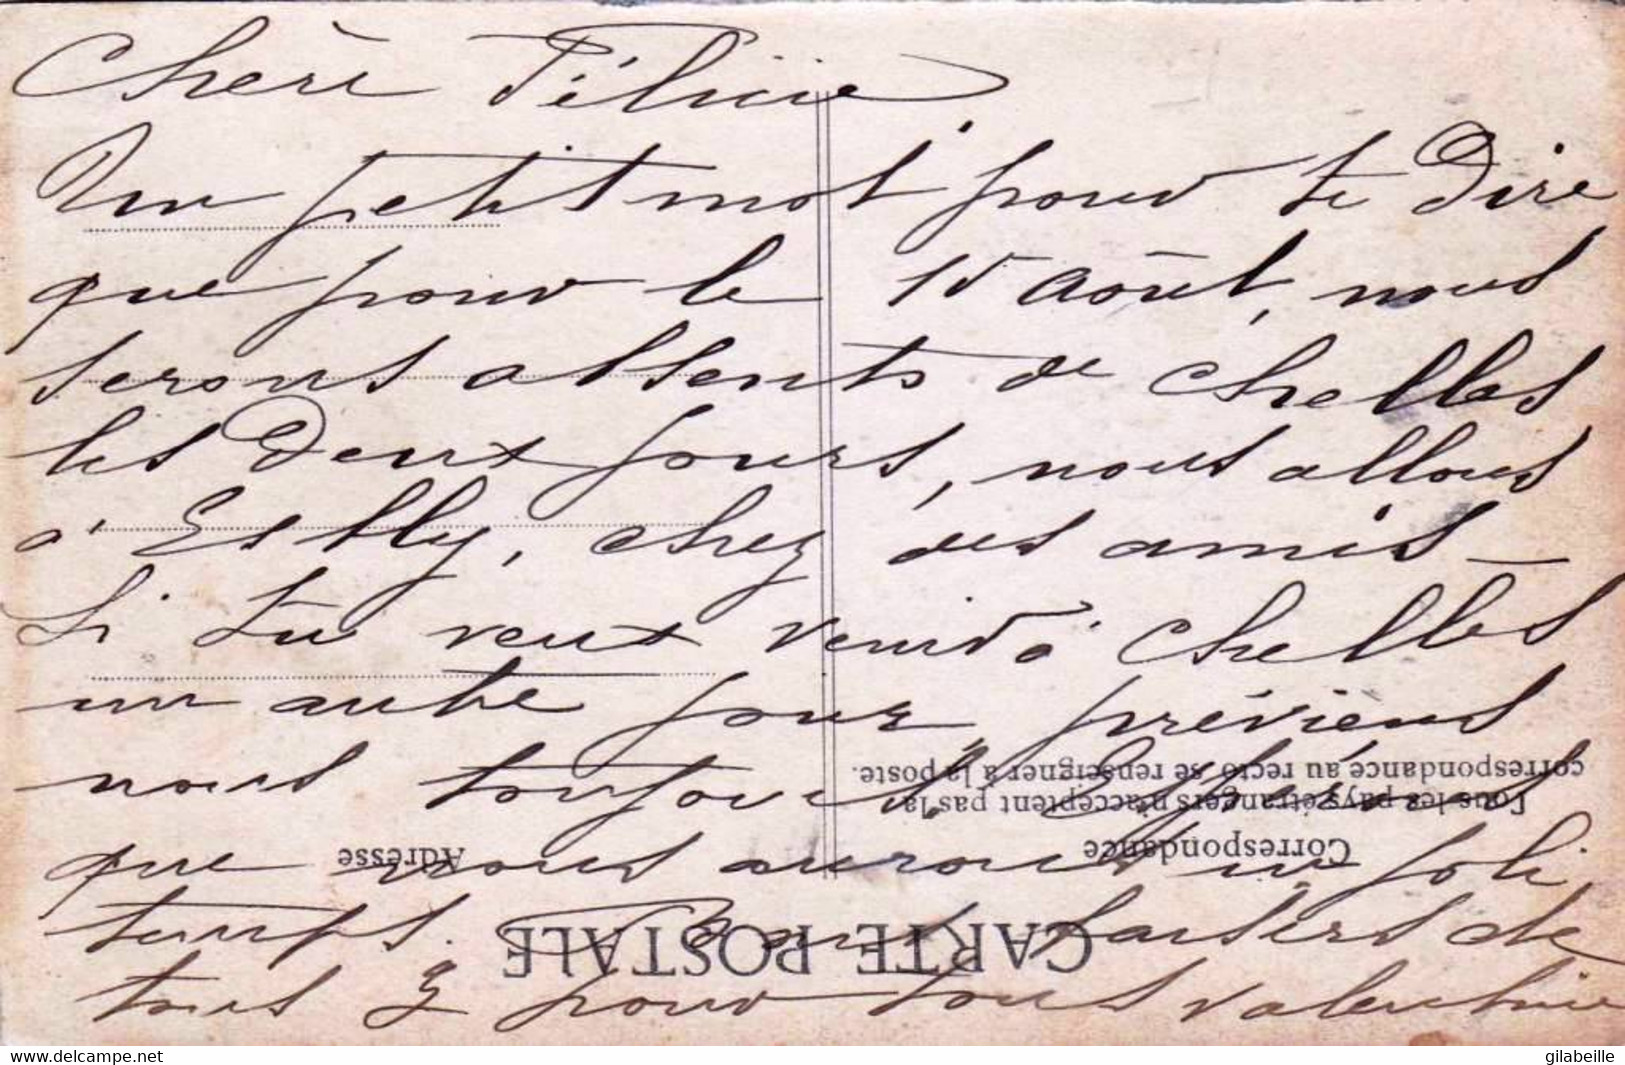 Chère Félicie
Un petit mot pour te Dire
que pour le 15 Août, nous
serons absents de Chelles
les Deux jours, nous allons
à Esbly, chez des amis _
Si tu veux venir à Chelles
un autre jour, préviens
nous toujours. Espérons
que nous aurons un joli
temps. Bons baisers de
tous 3 pour tous Valentine
CARTE POSTALE
Correspondance
Tous les pays étrangers n'acceptent pas la
correspondance au recto, se renseigner à la poste.
Adresse
delcampe.net
gilabeille